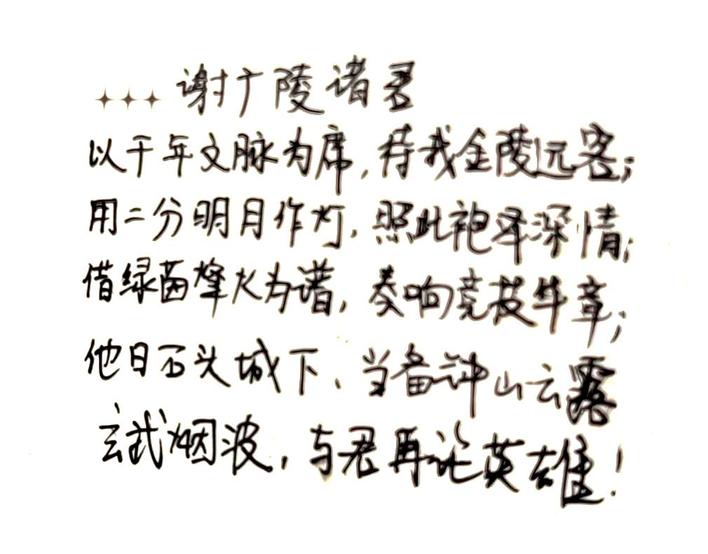 谢广陵诸君
以千年文脉为席，待我金陵远客；
用二分明月作灯，照此袍泽深情；
借绿茵烽火为谱，奏响竞技华章；
他日石头城下、当备钟山云雾
玄武烟波，与君再论英雄！